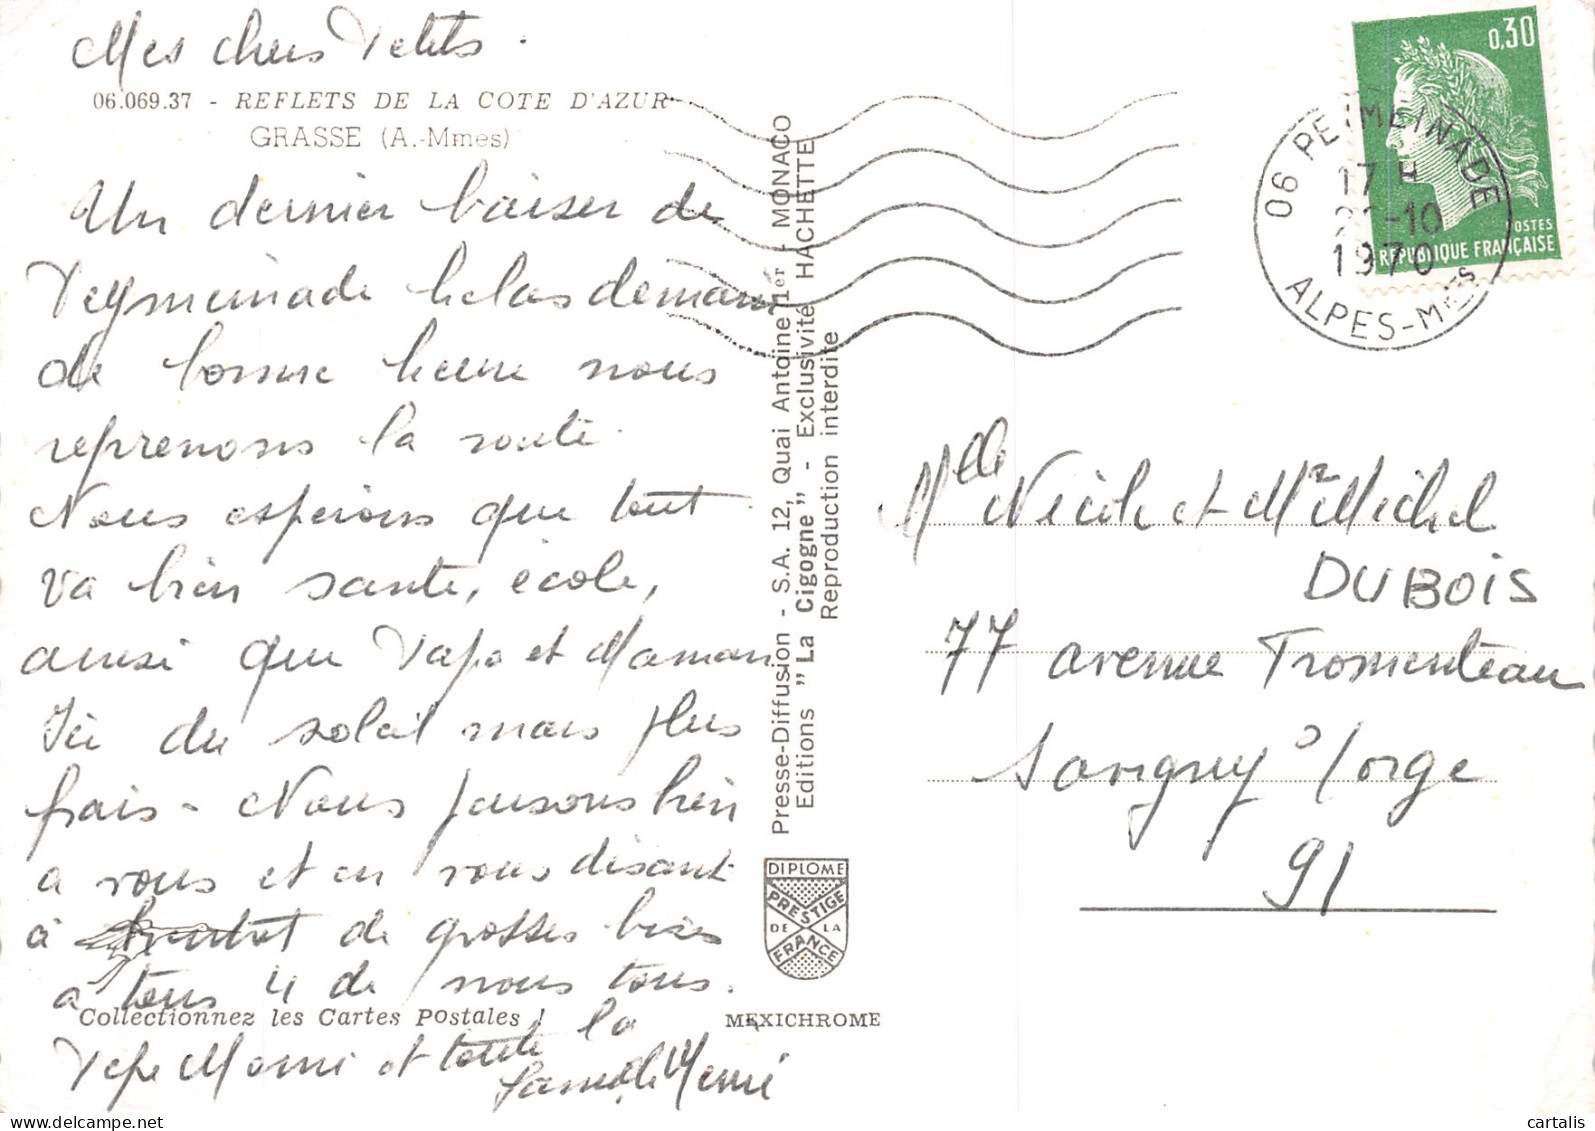 Mes chers Petits.
06.069.37 - REFLETS DE LA COTE D'AZUR
GRASSE (A.-Mmes)
Un dernier baiser de
Peymeinade helas demain
de bonne heure nous
reprenons la route.
Nous espérons que tout
va bien sante, école,
ainsi que Papa et Maman
Ici du soleil mais plus
frais - Nous pensons bien
a vous et en vous disant
à de grosses bises
a tous 4 de nous tous.
Collectionnez les Cartes Postales !
Pepe Mami et toute la
famille
Presse-Diffusion - S.A. 12, Quai Antoine 1er - MONACO
Editions "La Cigogne" - Exclusivité HACHETTE
Reproduction interdite
DIPLOME
PRESTIGE
DE LA
FRANCE
MEXICHROME
0,30
POSTES
REPUBLIQUE FRANÇAISE
06 PEYMEINADE
17 H
-10
1970
ALPES-Mmes
Mlle Nicole et Mr Michel
DUBOIS
77 avenue Tromenteau
Savigny s/orge
91
delcampe.net
cartalis